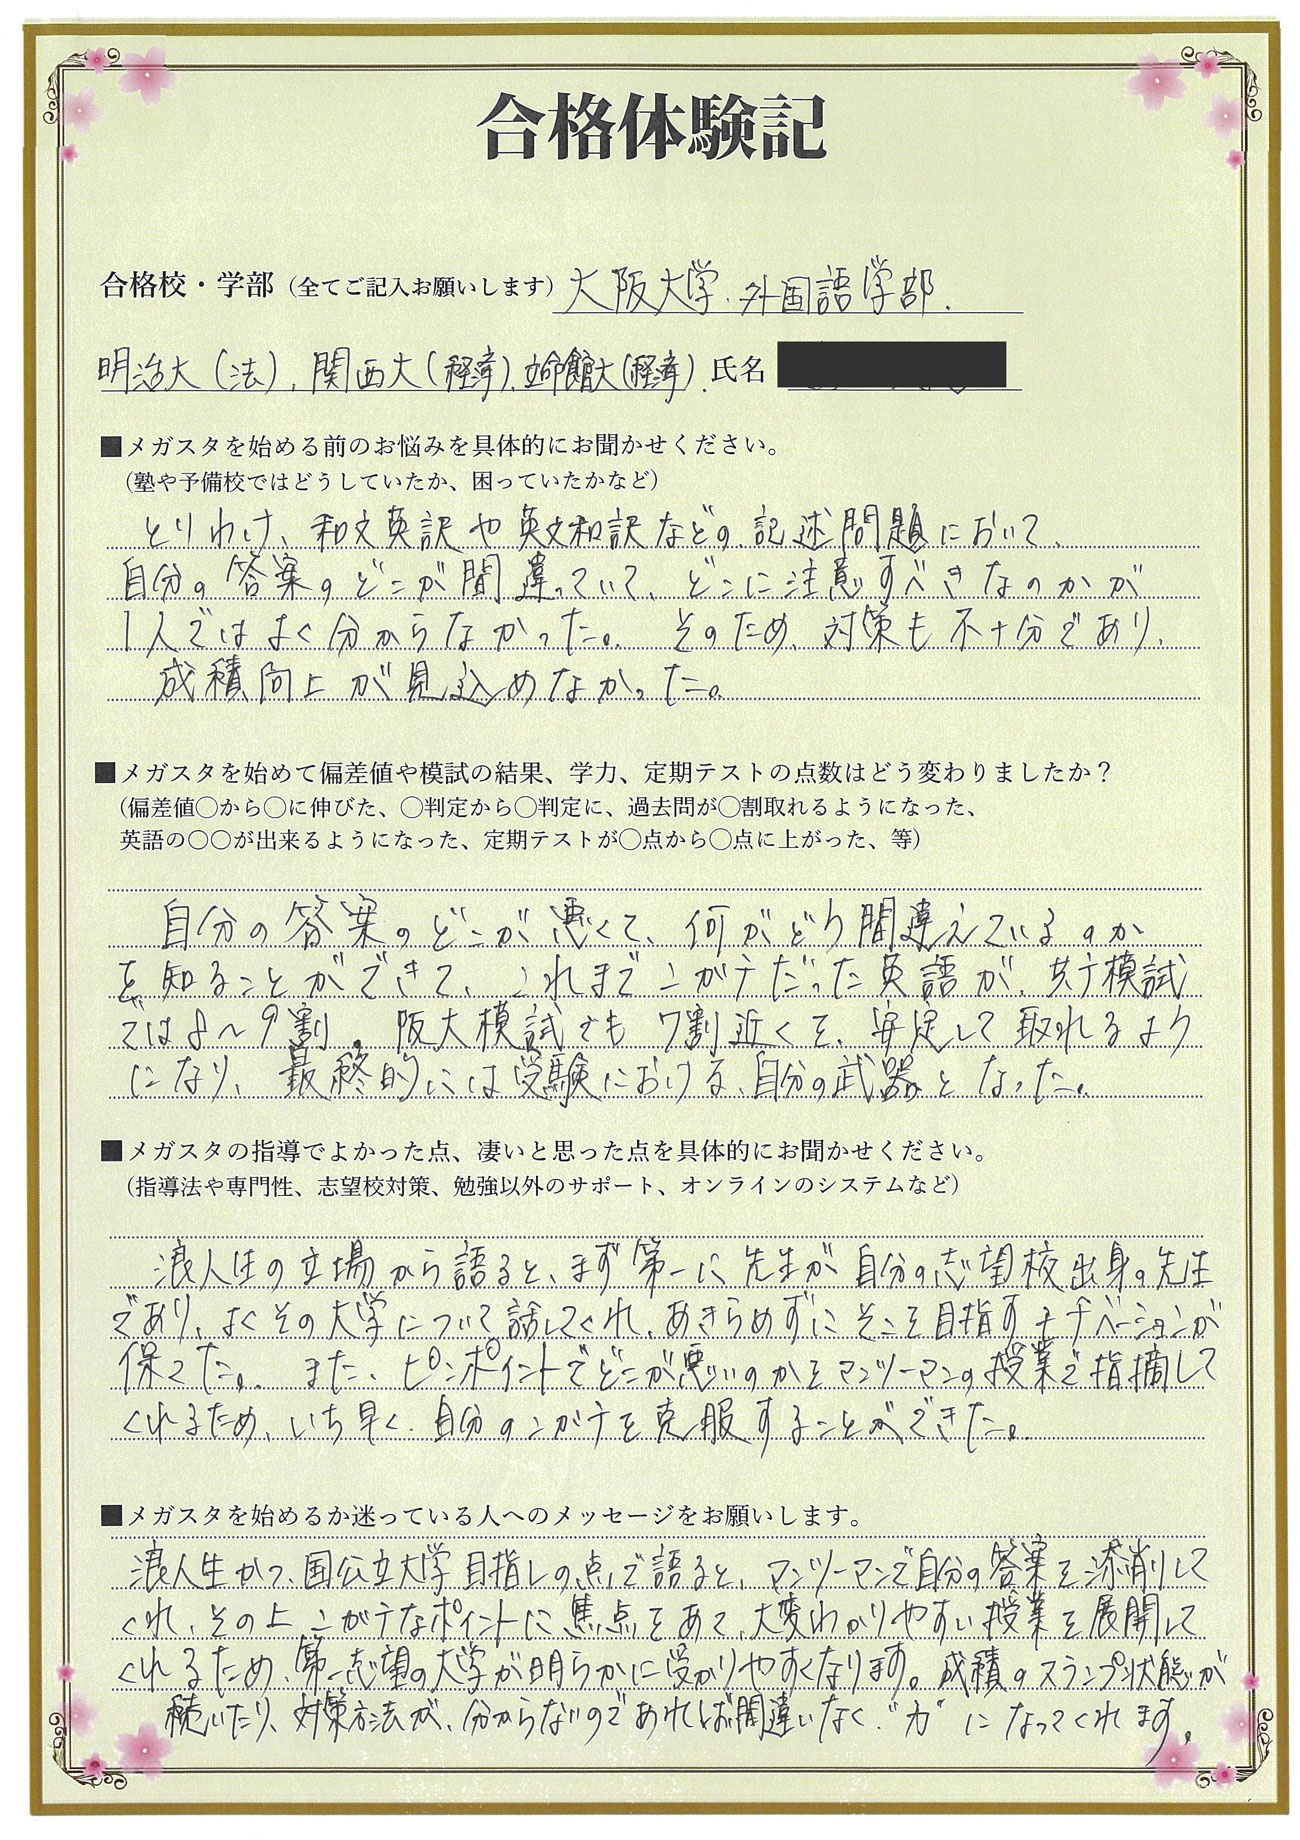 合格体験記
合格校・学部（全てご記入お願いします）大阪大学.外国語学部.
明治大（法）, 関西大（経済）, 立命館大（経済）. 氏名
■メガスタを始める前のお悩みを具体的にお聞かせください。
（塾や予備校ではどうしていたか、困っていたかなど）
とりわけ、和文英訳や英文和訳などの、記述問題において、
自分の答案のどこが間違っていて、どこに注意すべきなのかが
1人ではよく分からなかった。 そのため、対策も不十分であり、
成積向上が見込めなかった。
■メガスタを始めて偏差値や模試の結果、学力、定期テストの点数はどう変わりましたか？
（偏差値〇から〇に伸びた、〇判定から〇判定に、過去問が〇割取れるようになった、
英語の〇〇が出来るようになった、定期テストが〇点から〇点に上がった、等）
自分の答案のどこが悪くて、何がどう間違えているのか
を知ることができて、これまでニガテだった英語が、共テ模試
では8～9割、阪大模試でも7割近くを、安定して取れるよう
になり、最終的には受験における、自分の武器となった。
■メガスタの指導でよかった点、凄いと思った点を具体的にお聞かせください。
（指導法や専門性、志望校対策、勉強以外のサポート、オンラインのシステムなど）
浪人生の立場から語ると、まず第一に先生が自分の志望校出身の先生
であり、よくその大学について話してくれ、あきらめずにそこを目指すモチベーションが
保てた。 また、ピンポイントでどこが悪いのかをマンツーマンの授業で指摘して
くれるため、いち早く、自分のニガテを克服することができた。
■メガスタを始めるか迷っている人へのメッセージをお願いします。
浪人生かつ、国公立大学目指しの点で語ると、マンツーマンで自分の答案を添削して
くれ、その上ニガテなポイントに焦点をあて、大変わかりやすい授業を展開して
くれるため、第一志望の大学が明らかに受かりやすくなります。成積のスランプ状態が
続いたり、対策方法が、分からないのであれば間違いなく“力”になってくれます。